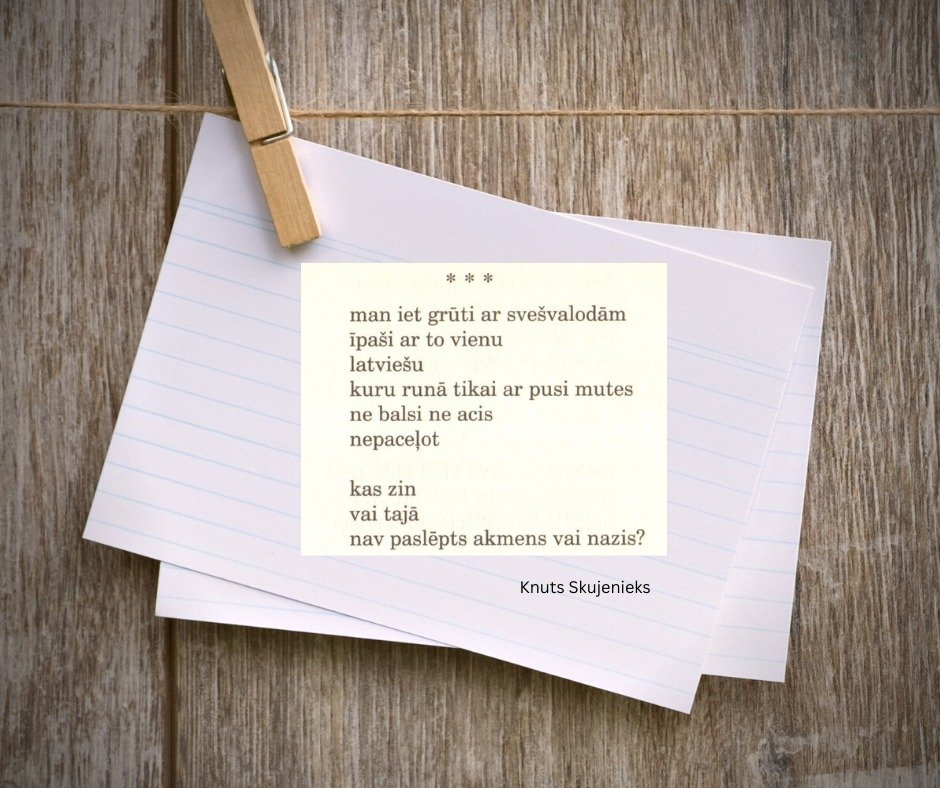 * * *
man iet grūti ar svešvalodām
īpaši ar to vienu
latviešu
kuru runā tikai ar pusi mutes
ne balsi ne acis
nepaceļot
kas zin
vai tajā
nav paslēpts akmens vai nazis?
Knuts Skujenieks